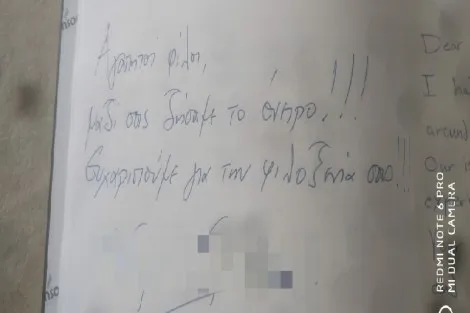 Αγαπητοί φίλοι,
μαζί σας ζήσαμε το όνειρο!!!
Ευχαριστούμε για την φιλοξενία σας!!!
Dear
I ha
around
Our
REDMI NOTE 6 PRO
MI DUAL CAMERA